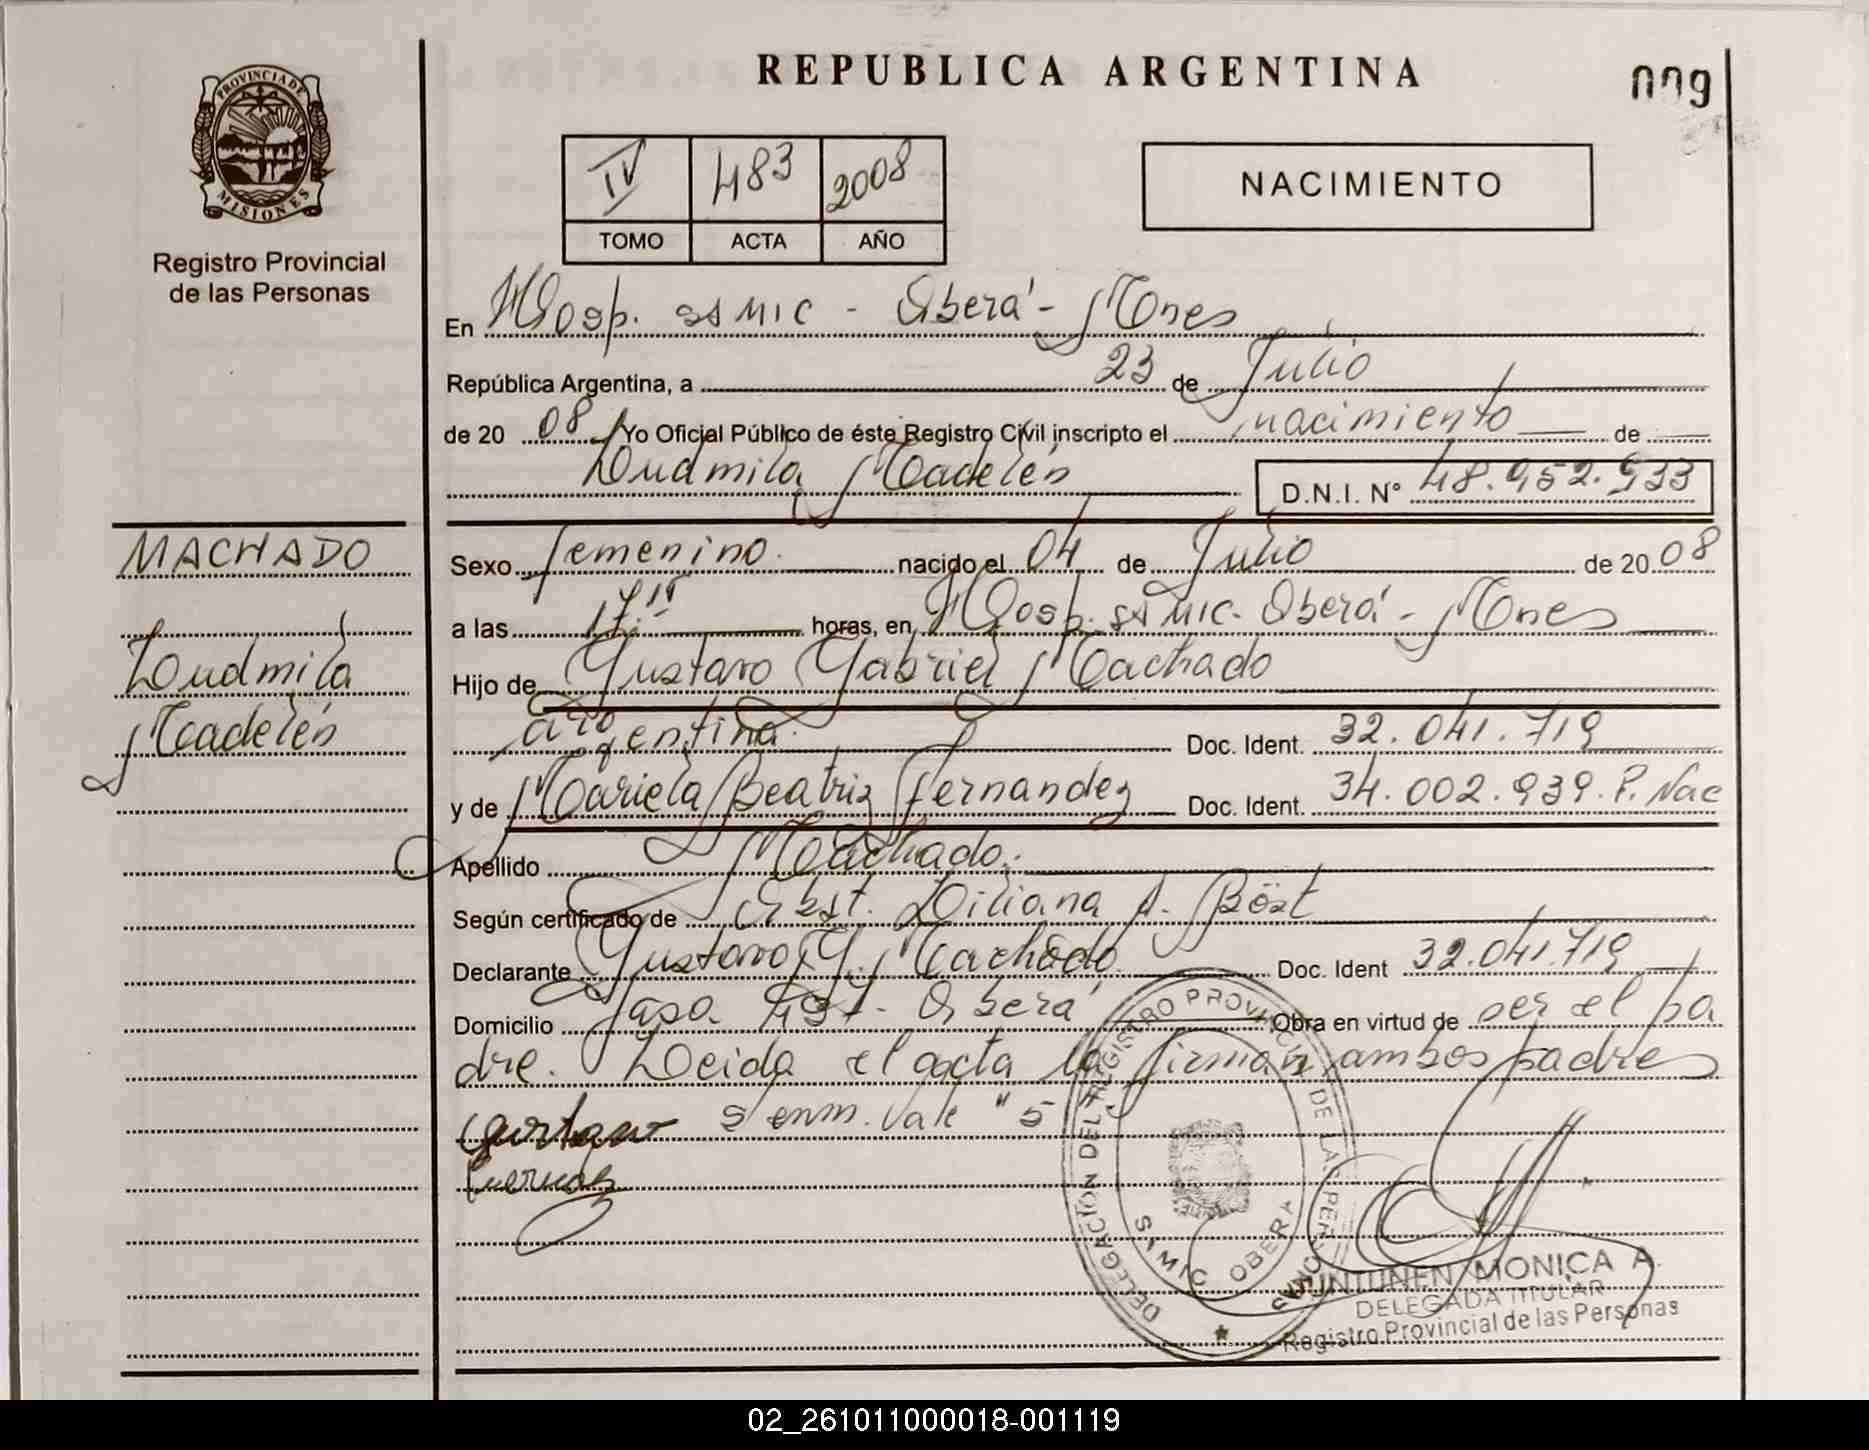 REPUBLICA ARGENTINA
009
PROVINCIA DE
MISIONES
Registro Provincial
de las Personas
IV 483 2008
TOMO ACTA AÑO
NACIMIENTO
En Hosp. SAMIC - Oberá - Mnes
República Argentina, a 23 de Julio
de 20 08 Yo Oficial Público de éste Registro Civil inscripto el nacimiento de
Ludmila Madelés D.N.I. Nº 48.952.933
MACHADO
Ludmila
Madelés
Sexo femenino. nacido el 04 de Julio de 20 08
a las 17:15 horas, en Hosp. SAMIC - Oberá - Mnes
Hijo de Gustavo Gabriel Machado
argentina. Doc. Ident. 32.041.719
y de Mariela Beatriz Fernandez Doc. Ident. 34.002.939. P. Nac
Apellido Machado.
Según certificado de Obst. Liliana A. Böst
Declarante Gustavo G. Machado Doc. Ident 32.041.719
Domicilio 437 - Oberá Obra en virtud de ser el pa
dre. Leida el acta la firman ambos padres
S enm. Vale "5"
Gustavo
DELEGACION DEL REGISTRO PROVINCIAL DE LAS PERSONAS
SAMIC OBERA
MONICA A.
DELEGADA TITULAR
Registro Provincial de las Personas
02_261011000018-001119